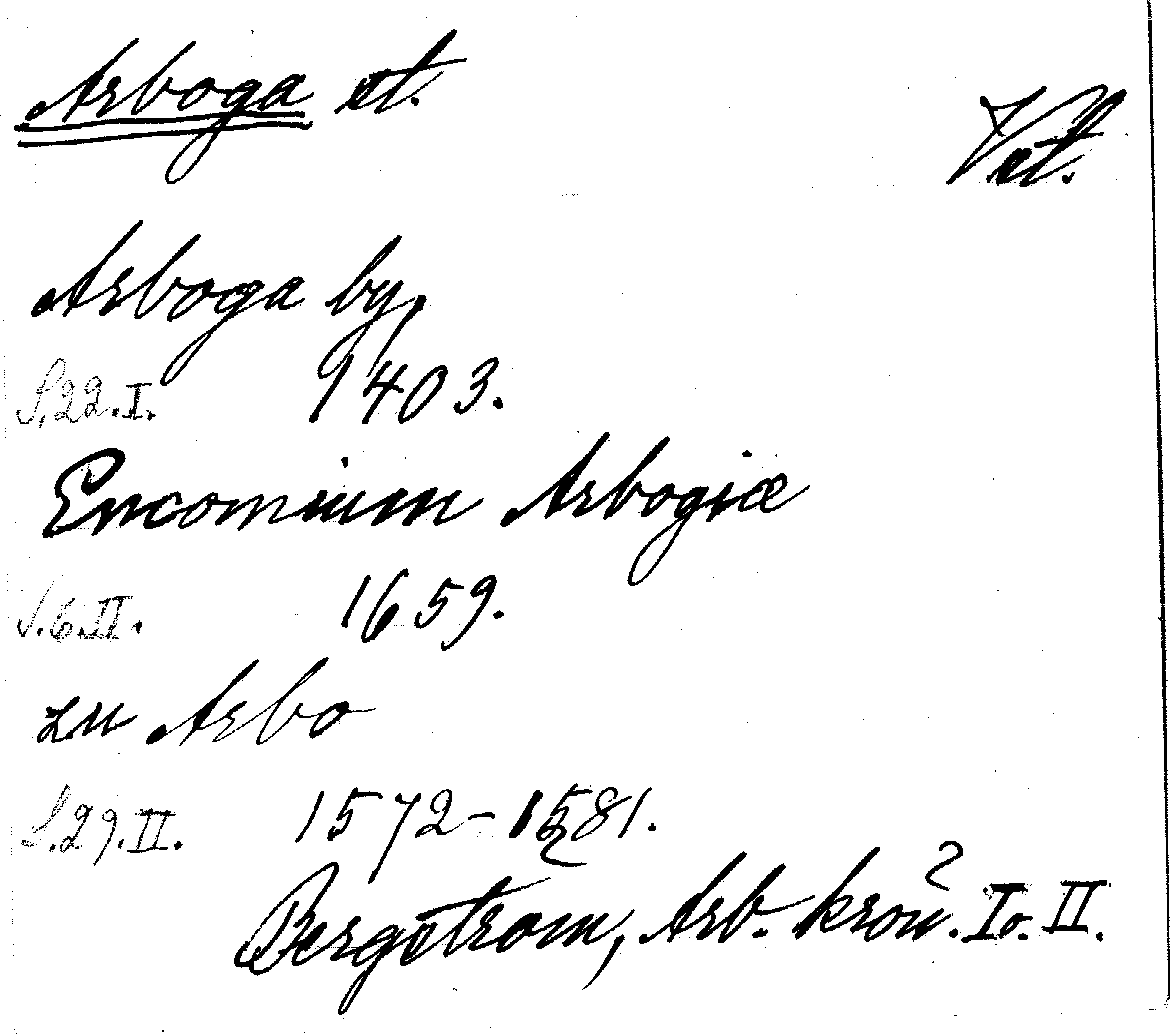 Arboga st.
Vstm.
Arboga by,
S. 22. I. 1403.
Encomium Arbogiæ
S. 6. II. 1659.
zu Arbo
S. 29. II. 1572-1581.
Bergström, Arb. krön. I o. II.